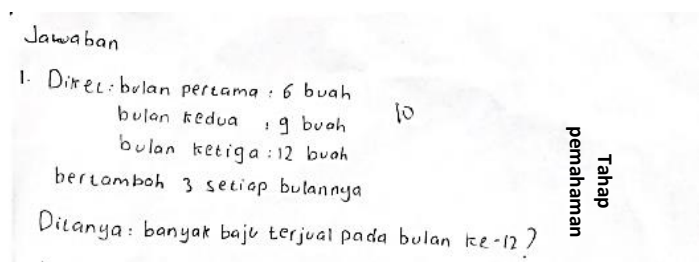 Jawaban
1. Diket: bulan pertama : 6 buah
bulan kedua : 9 buah
10
bulan ketiga : 12 buah
bertambah 3 setiap bulannya
Ditanya: banyak baju terjual pada bulan ke-12?
Tahap
pemahaman